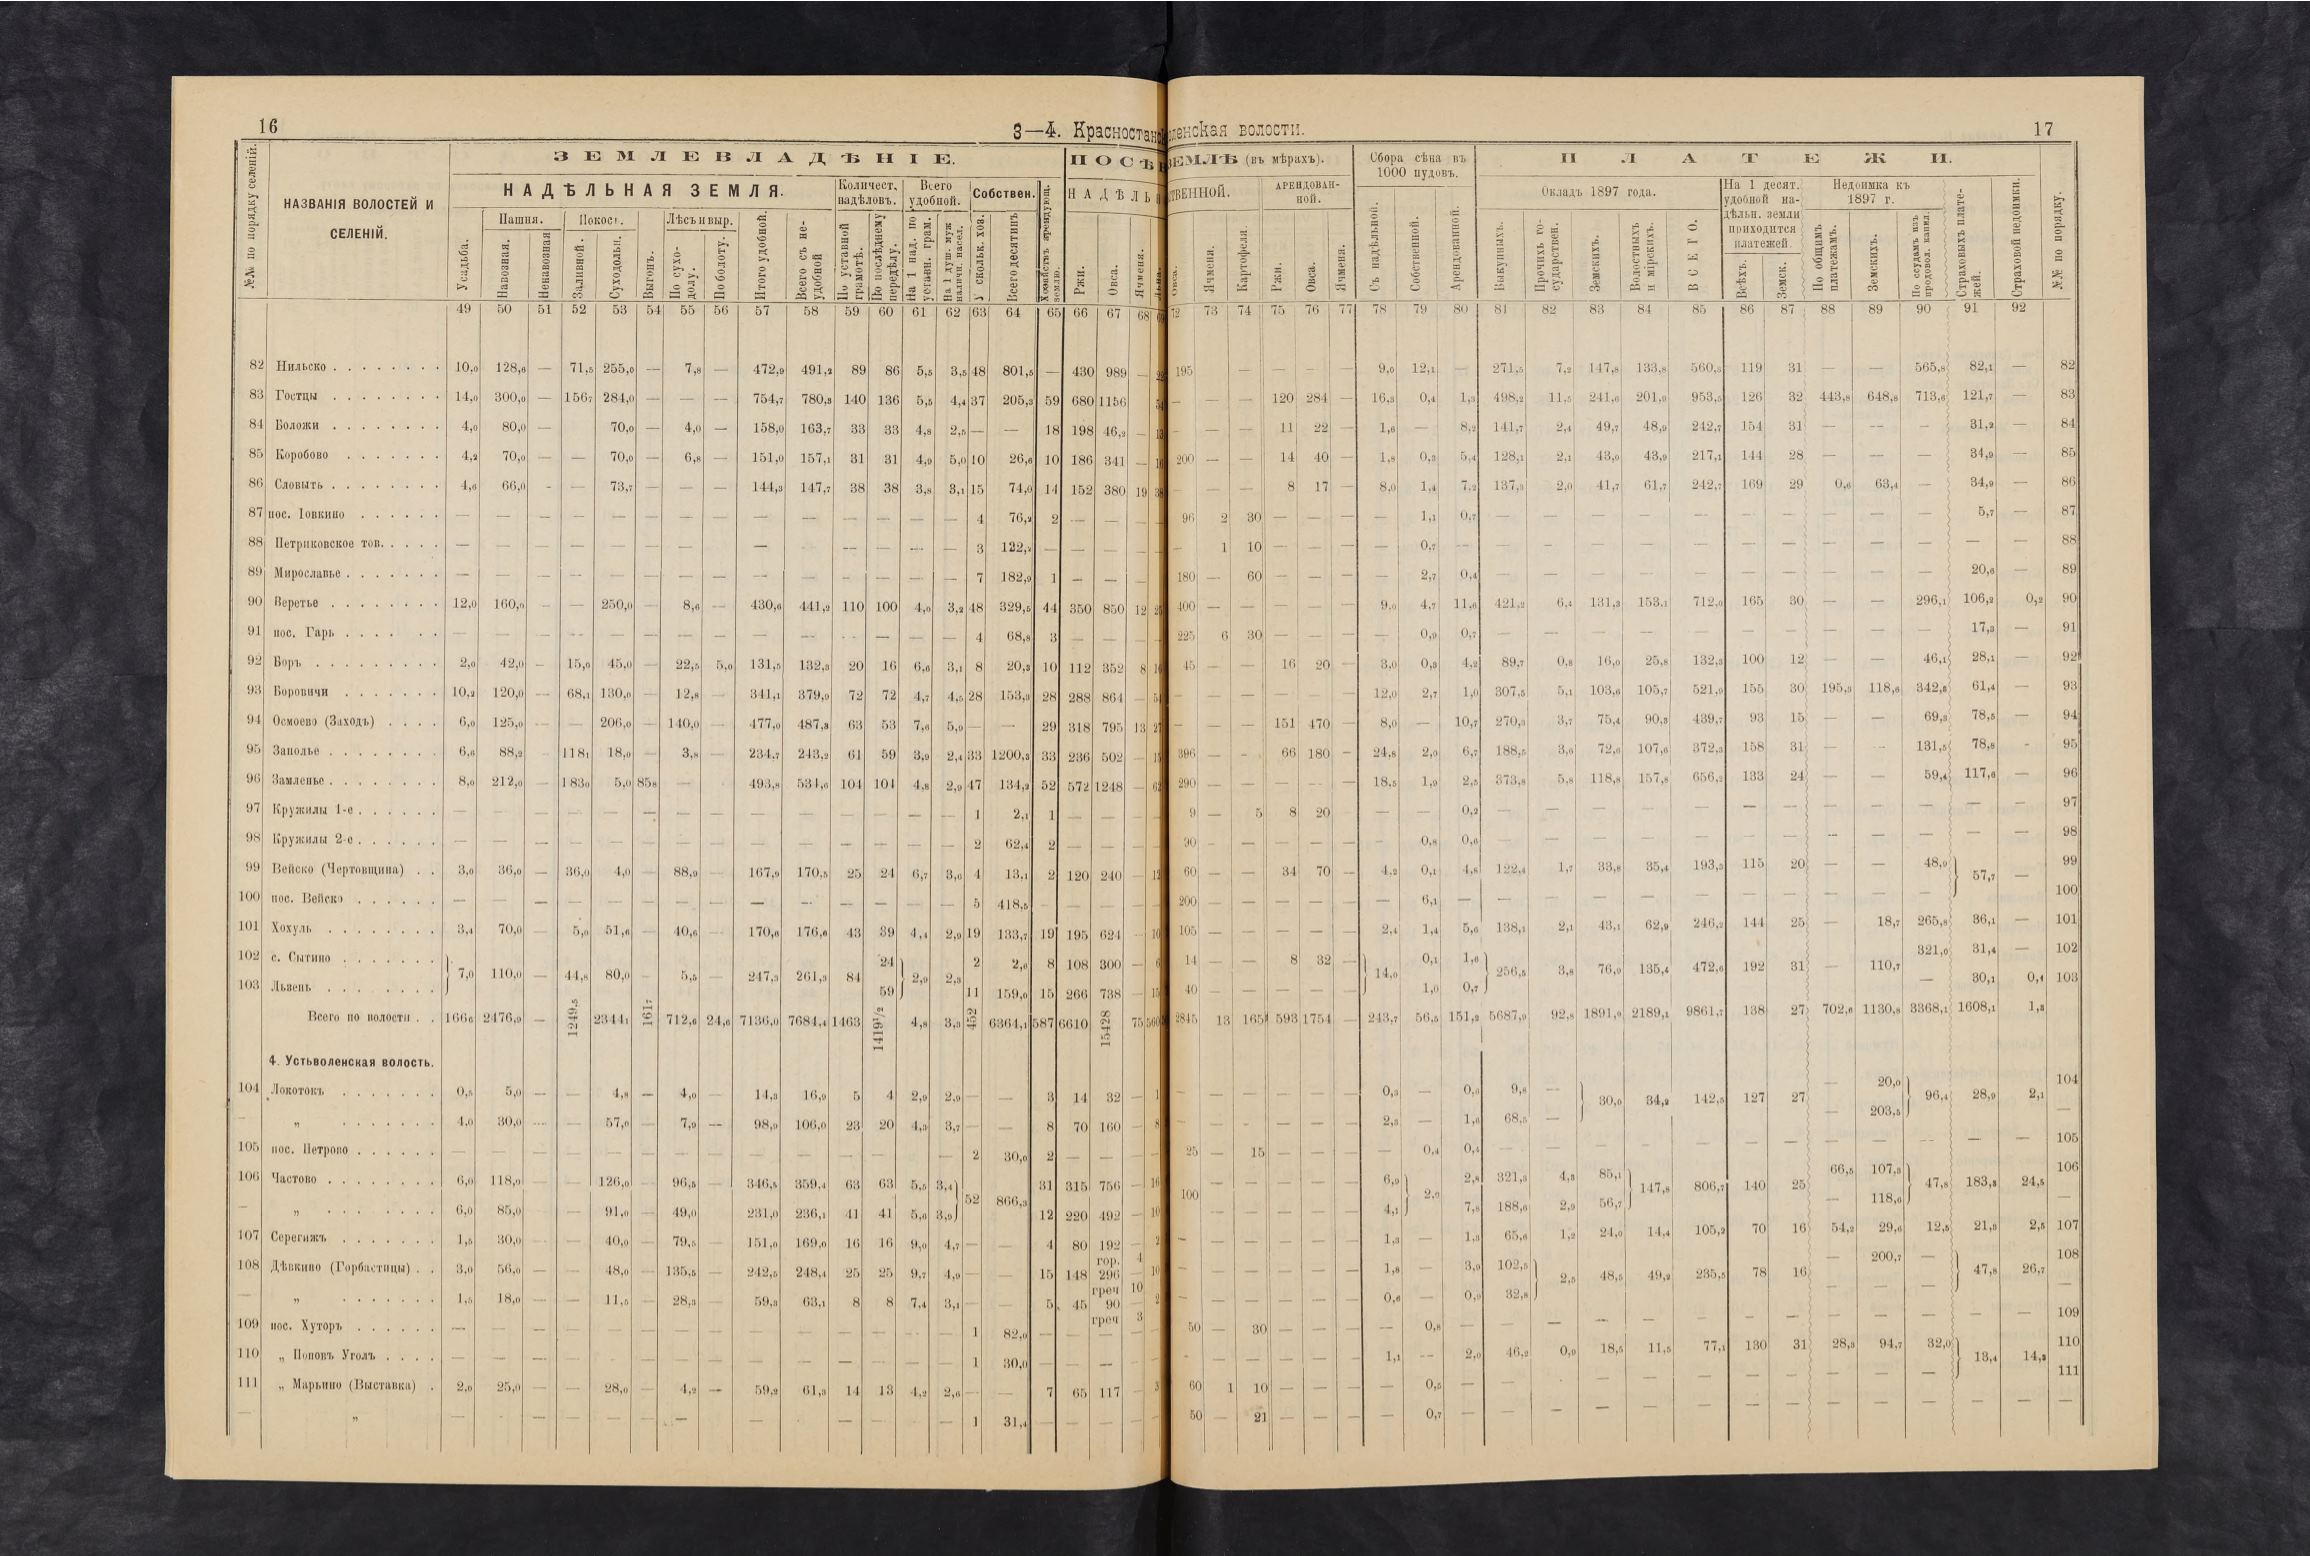 16
3—4. Красностано
ленская волости.
17
№№ по порядку селеній.
НАЗВАНІЯ ВОЛОСТЕЙ И СЕЛЕНІЙ.
ЗЕМЛЕВЛАДѢНІЕ.
НАДѢЛЬНАЯ ЗЕМЛЯ.
Усадьба.
Пашня.
Навозная.
Ненавозная
Покосъ.
Заливной.
Суходольн.
Выгонъ.
Лѣсъ и выр.
По сухо-долу.
По болоту.
Итого удобной.
Всего съ не-удобной
Количест. надѣловъ.
По уставной грамотѣ.
По послѣднему передѣлу.
Всего удобной.
На 1 над. по уставн. грам.
На 1 душ. муж. наличн. насел.
Собствен.
У скольк. хоз.
Всего десятинъ
Хозяйствъ арендующ. землю.
ПОСѢВ
ЗЕМЛѢ (въ мѣрахъ).
НАДѢЛЬН
СТВЕННОЙ.
Ржи.
Овса.
Ячменя.
Овса.
Ячменя.
Картофеля.
АРЕНДОВАН-НОЙ.
Ржи.
Овса.
Ячменя.
Сбора сѣна въ 1000 пудовъ.
Съ надѣльной.
Собственной.
Арендованной.
ПЛАТЕЖИ.
Окладъ 1897 года.
Выкупныхъ.
Прочихъ го-сударствен.
Земскихъ.
Волостныхъ и мірскихъ.
ВСЕГО.
На 1 десят. удобной на-дѣльн. земли приходится платежей.
Всѣхъ.
Земск.
Недоимка къ 1897 г.
По общимъ платежамъ.
Земскихъ.
По ссудамъ изъ продовол. капил.
Страховыхъ плате-жей.
Страховой недоимки.
№№ по порядку.
49 50 51 52 53 54 55 56 57 58 59 60 61 62 63 64 65 66 67 68 72 73 74 75 76 77 78 79 80 81 82 83 84 85 86 87 88 89 90 91 92
82 Нильско 10,0 128,6 — 71,5 255,0 — 7,8 — 472,9 491,2 89 86 5,5 3,5 48 801,5 — 430 989 — 195 — — — — — 9,0 12,1 — 271,5 7,2 147,8 133,8 560,3 119 31 — — 565,8 82,1 — 82
83 Гостцы 14,0 300,0 — 156,7 284,0 — — — 754,7 780,3 140 136 5,5 4,4 37 205,3 59 680 1156 — — — 120 284 — 16,3 0,4 1,3 498,2 11,5 241,6 201,9 953,5 126 32 443,8 648,8 713,6 121,7 — 83
84 Боложи 4,0 80,0 — 70,0 — 4,0 — 158,0 163,7 33 33 4,8 2,5 — — 18 198 46,2 — — — — 11 22 — 1,6 — 8,2 141,7 2,4 49,7 48,9 242,7 154 31 — — — 31,2 — 84
85 Коробово 4,2 70,0 — — 70,0 — 6,8 — 151,0 157,1 31 31 4,9 5,0 10 26,6 10 186 341 — 200 — — 14 40 — 1,8 0,3 5,4 128,1 2,1 43,0 43,9 217,1 144 28 — — — 34,9 — 85
86 Словыть 4,6 66,0 - — 73,7 — — — 144,3 147,7 38 38 3,8 3,1 15 74,0 14 152 380 19 — — — 8 17 — 8,0 1,4 7,2 137,3 2,0 41,7 61,7 242,7 169 29 0,6 63,4 — 34,9 — 86
87 пос. Іовкино — — — — — — — — — — — — — — 4 76,2 2 — — — 96 2 30 — — — — 1,1 0,7 — — — — — — — — — — 5,7 — 87
88 Петриковское тов. — — — — — — — — — — — — — — 3 122,2 — — — — — 1 10 — — — — 0,7 — — — — — — — — — — — — — 88
89 Мирославье — — — — — — — — — — — — — — 7 182,9 1 — — — 180 — 60 — — — — 2,7 0,4 — — — — — — — — — — 20,6 — 89
90 Веретье 12,0 160,0 — — 250,0 — 8,6 — 430,6 441,2 110 100 4,0 3,2 48 329,5 44 350 850 12 400 — — — — — 9,0 4,7 11,6 421,2 6,4 131,3 153,1 712,0 165 30 — — 296,1 106,2 0,2 90
91 пос. Гарь — — — — — — — — — — — — — — 4 68,8 3 — — — 225 6 30 — — — — 0,9 0,7 — — — — — — — — — — 17,3 — 91
92 Боръ 2,0 42,0 — 15,0 45,0 — 22,5 5,0 131,5 132,3 20 16 6,6 3,1 8 20,3 10 112 352 8 45 — — 16 20 — 3,0 0,3 4,2 89,7 0,8 16,0 25,8 132,3 100 12 — — 46,1 28,1 — 92
93 Боровичи 10,2 120,0 — 68,1 130,0 — 12,8 — 341,1 379,9 72 72 4,7 4,5 28 153,3 28 288 864 — — — — — — — 12,0 2,7 1,0 307,5 5,1 103,6 105,7 521,9 155 30 195,3 118,6 342,8 61,4 — 93
94 Осмоево (Заходъ) 6,0 125,0 — — 206,0 — 140,0 — 477,0 487,3 63 53 7,6 5,9 — — 29 318 795 13 — — — 151 470 — 8,0 — 10,7 270,3 3,7 75,4 90,3 439,7 93 15 — — 69,3 78,5 — 94
95 Заполье 6,6 88,2 — 118,1 18,0 — 3,8 — 234,7 243,2 61 59 3,9 2,4 33 1200,3 33 236 502 — 396 — — 66 180 — 24,8 2,0 6,7 188,5 3,6 72,6 107,6 372,3 158 31 — — 131,5 78,8 - 95
96 Замленье 8,0 212,0 — 183,0 5,0 85,8 — 493,8 534,6 104 104 4,8 2,9 47 134,2 52 572 1248 — 290 — — — — — 18,5 1,9 2,5 373,8 5,8 118,8 157,8 656,2 133 24 — — 59,4 117,6 — 96
97 Кружилы 1-е — — — — — — — — — — — — — — 1 2,1 1 — — — 9 — 5 8 20 — — 0,2 — — — — — — — — — — — — 97
98 Кружилы 2-е — — — — — — — — — — — — — — 2 62,4 2 — — — 30 — — — — — — 0,8 0,6 — — — — — — — — — — — — 98
99 Вейско (Чертовщина) 3,0 36,0 — 36,0 4,0 — 88,9 — 167,9 170,5 25 24 6,7 3,6 4 13,1 2 120 240 — 60 — — 34 70 — 4,2 0,1 4,8 122,4 1,7 33,8 35,4 193,3 115 20 — — 48,9 57,7 — 99
100 пос. Вейско — — — — — — — — — — — — — — 5 418,5 — — — — 200 — — — — — — 6,1 — — — — — — — — — — — 100
101 Хохуль 3,4 70,0 — 5,0 51,6 — 40,6 — 170,6 176,6 43 39 4,4 2,9 19 133,7 19 195 624 — 105 — — — — — 2,4 1,4 5,6 138,1 2,1 43,1 62,9 246,2 144 25 — 18,7 265,8 36,1 — 101
102 с. Сытино 24 2 2,6 8 108 300 — 14 — — 8 32 — 0,1 1,6 321,0 31,4 — 102
7,0 110,0 — 44,8 80,0 — 5,5 — 247,3 261,3 84 2,9 2,3 14,0 256,5 3,8 76,9 135,4 472,6 192 31 — 110,7
103 Львень 59 11 159,0 15 266 738 — 40 — — — — — 1,0 0,7 — 30,1 0,4 103
Всего по волости 166,6 2476,9 — 1249,5 2344,1 161,7 712,6 24,6 7136,0 7684,4 1463 1419½ 4,8 3,3 452 6364,1 587 6610 15428 75 2845 13 165 593 1754 — 243,7 56,5 151,2 5687,9 92,8 1891,9 2189,1 9861,7 138 27 702,6 1130,8 3368,1 1608,1 1,3
4. Устьволенская волость.
104 Локотокъ 0,5 5,0 — — 4,8 — 4,0 — 14,3 16,9 5 4 2,9 2,9 — — 3 14 32 — — — — — — — 0,3 — 0,3 9,8 — 30,0 34,2 142,5 127 27 — 20,0 96,4 28,9 2,1 104
— „ 4,0 30,0 — — 57,0 — 7,9 — 98,9 106,0 23 20 4,3 3,7 — — 8 70 160 — — — — — — — 2,3 — 1,6 68,5 — — 203,5 —
105 пос. Петрово — — — — — — — — — — — — — — 2 30,0 2 — — — 25 — 15 — — — — 0,4 0,4 — — — — — — — — — — — — 105
106 Частово 6,0 118,0 — — 126,0 — 96,5 — 346,5 359,4 63 63 5,5 3,4 52 866,3 31 315 756 — 100 — — — — — 6,9 2,9 2,8 321,3 4,3 85,1 147,8 806,7 140 25 66,5 107,3 47,8 183,3 24,5 106
— „ 6,0 85,0 — — 91,0 — 49,0 — 231,0 236,1 41 41 5,6 3,9 12 220 492 — — — — — — 4,1 7,8 188,6 2,9 56,7 — 118,6 —
107 Серегижъ 1,5 30,0 — — 40,0 — 79,5 — 151,0 169,0 16 16 9,0 4,7 — — 4 80 192 — — — — — — — 1,3 — 1,3 65,6 1,2 24,0 14,4 105,2 70 16 54,2 29,6 12,5 21,3 2,5 107
108 Дѣвкино (Горбастицы) 3,0 56,0 — — 48,0 — 135,5 — 242,5 248,4 25 25 9,7 4,9 — — 15 148 гор. 296 4 — — — — — — — 1,8 — 3,9 102,5 2,5 48,5 49,2 235,5 78 16 — 200,7 — 47,8 26,7 108
— „ 1,5 18,0 — — 11,5 — 28,3 — 59,3 63,1 8 8 7,4 3,1 — — 5 45 греч 90 10 — — — — — — 0,6 — 0,9 32,8 — — — —
109 пос. Хуторъ — — — — — — — — — — — — — — 1 82,0 — — греч 3 50 — 30 — — — — 0,8 — — — — — — — — — — — — — 109
110 „ Поповъ Уголъ — — — — — — — — — — — — — — 1 30,0 — — — — — — — — — — 1,1 — 2,0 46,2 0,9 18,5 11,5 77,1 130 31 28,3 94,7 32,0 13,4 14,3 110
111 „ Марьино (Выставка) 2,0 25,0 — — 28,0 — 4,2 — 59,2 61,3 14 13 4,2 2,6 — — 7 65 117 — 60 1 10 — — — — 0,5 — — — — — — — — — — 111
— „ — — — — — — — — — — — — — — 1 31,4 — — — — 50 — 21 — — — — 0,7 — — — — — — — — — — — — —